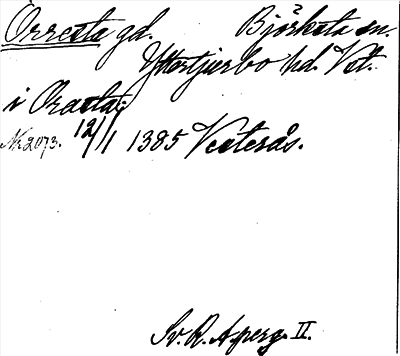 Orresta gd. Björksta sn.
Yttertjurbo hd. Vst.
i Orasta;
Nr 2073. 12/1 1385 Vesterås.
Sv. R. Aperg. II.